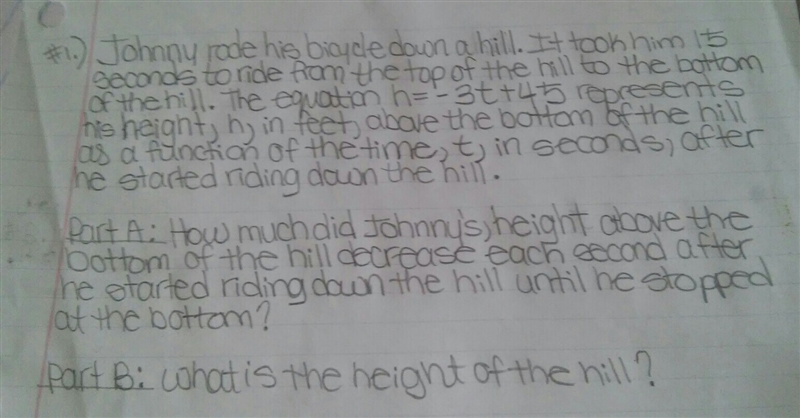 #1.) Johnny rode his bicycle down a hill. It took him 15
seconds to ride from the top of the hill to the bottom
of the hill. The equation h=-3t+45 represents
his height, h, in feet, above the bottom of the hill
as a function of the time, t, in seconds, after
he started riding down the hill.
Part A: How much did Johnny's, height above the
bottom of the hill decrease each second after
he started riding down the hill until he stopped
at the bottom?
Part B: What is the height of the hill?